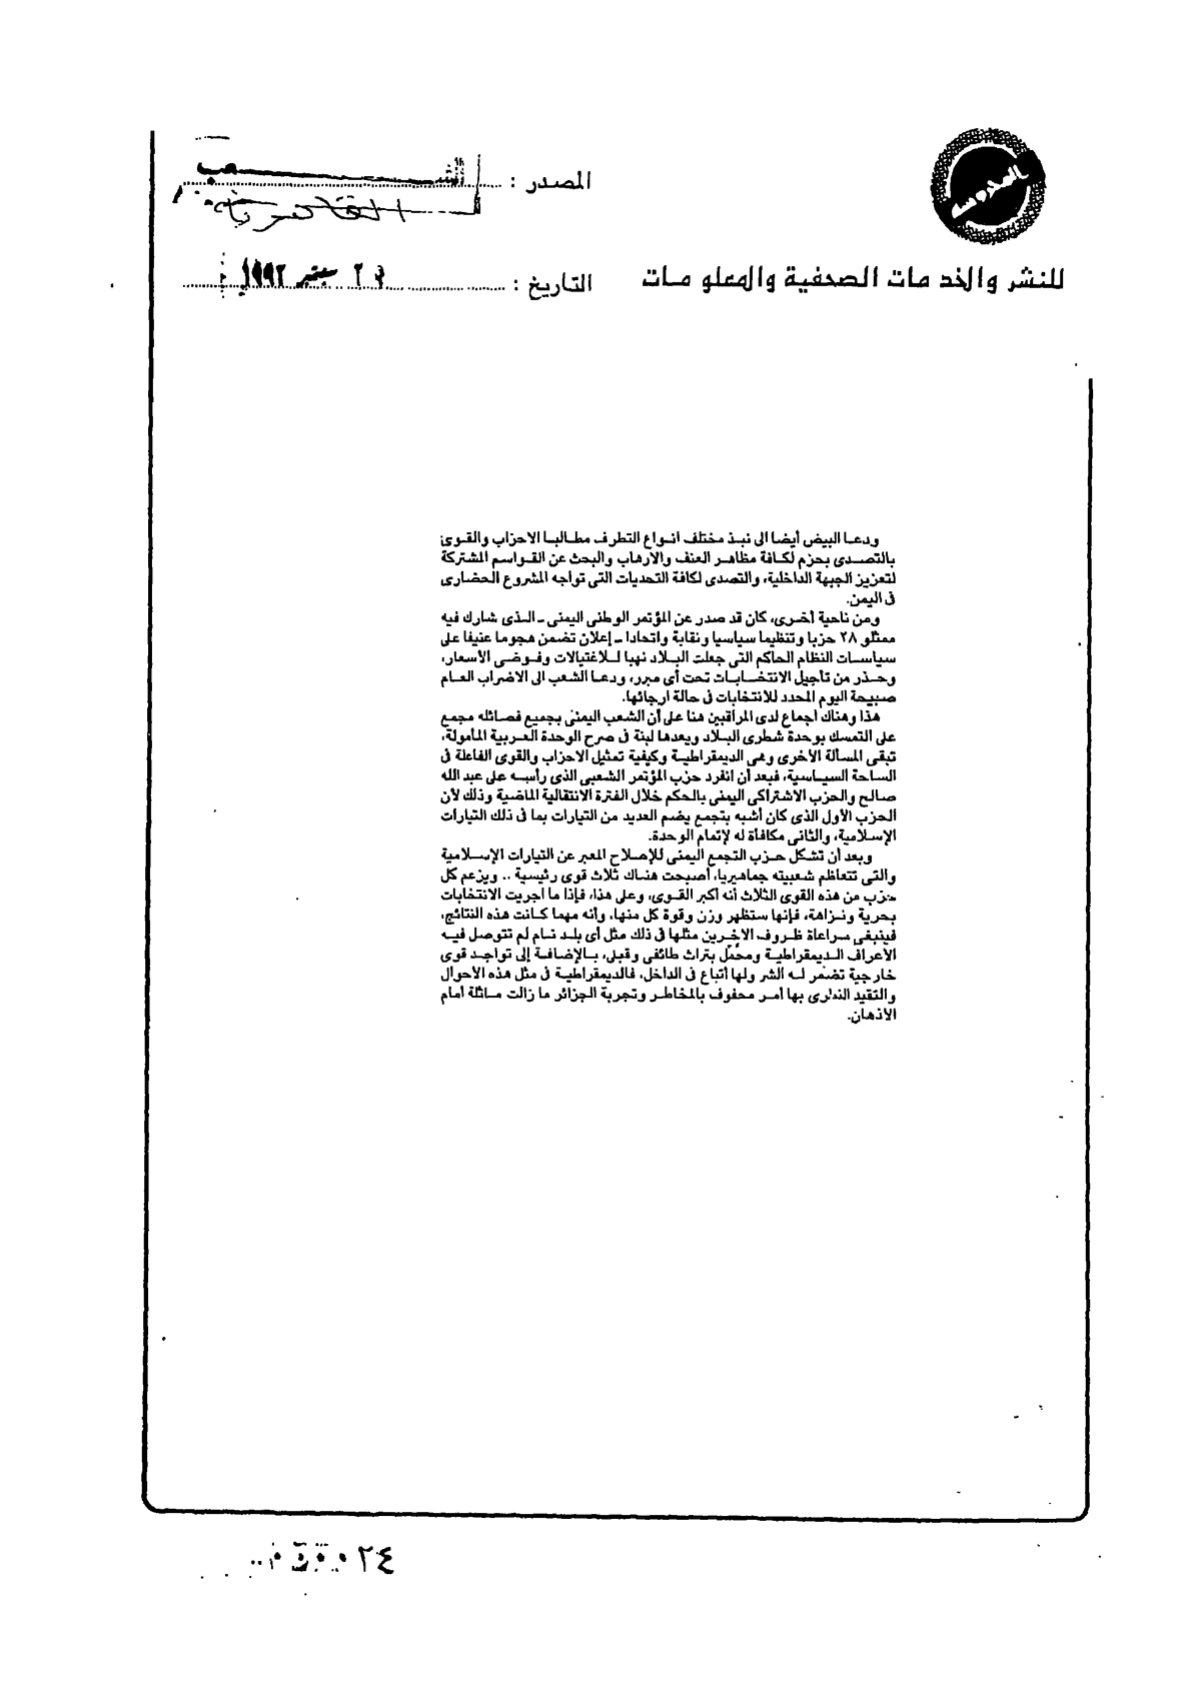 المصدر : الشعب
القاهرية
للنشر والخدمات الصحفية والمعلومات
التاريخ : سبتمبر ١٩٩٢
ودعا البيض أيضا الى نبذ مختلف انواع التطرف مطالبا الاحزاب والقوى
بالتصدى بحزم لكافة مظاهر العنف والارهاب والبحث عن القواسم المشتركة
لتعزيز الجبهة الداخلية، والتصدى لكافة التحديات التى تواجه المشروع الحضارى
فى اليمن.
ومن ناحية أخرى، كان قد صدر عن المؤتمر الوطنى اليمنى ـ الذى شارك فيه
ممثلو ٢٨ حزبا وتنظيما سياسيا ونقابة واتحادا ـ إعلان تضمن هجوما عنيفا على
سياسات النظام الحاكم التى جعلت البلاد نهبا للاغتيالات وفوضى الأسعار،
وحذر من تأجيل الانتخابات تحت أى مبرر، ودعا الشعب الى الاضراب العام
صبيحة اليوم المحدد للانتخابات فى حالة ارجائها.
هذا وهناك اجماع لدى المراقبين هنا على أن الشعب اليمنى بجميع فصائله مجمع
على التمسك بوحدة شطرى البلاد ويعدها لبنة فى صرح الوحدة العربية المأمولة،
تبقى المسألة الأخرى وهى الديمقراطية وكيفية تمثيل الاحزاب والقوى الفاعلة فى
الساحة السياسية، فبعد أن انفرد حزب المؤتمر الشعبى الذى رأسه على عبد الله
صالح والحزب الاشتراكى اليمنى بالحكم خلال الفترة الانتقالية الماضية وذلك لأن
الحزب الأول الذى كان أشبه بتجمع يضم العديد من التيارات بما فى ذلك التيارات
الإسلامية، والثانى مكافأة له لإتمام الوحدة.
وبعد أن تشكل حزب التجمع اليمنى للإصلاح المعبر عن التيارات الإسلامية
والتى تتعاظم شعبيته جماهيريا، أصبحت هناك ثلاث قوى رئيسية .. ويزعم كل
حزب من هذه القوى الثلاث أنه أكبر القوى، وعلى هذا، فإذا ما اجريت الانتخابات
بحرية ونزاهة، فإنها ستظهر وزن وقوة كل منها، وأنه مهما كانت هذه النتائج،
فينبغى مراعاة ظروف الآخرين مثلها فى ذلك مثل أى بلد نام لم تتوصل فيه
الأعراف الديمقراطية ومحمل بتراث طائفى وقبلى، بالإضافة إلى تواجد قوى
خارجية تضمر له الشر ولها أتباع فى الداخل، فالديمقراطية فى مثل هذه الأحوال
والتقيد النظرى بها أمر محفوف بالمخاطر وتجربة الجزائر ما زالت ماثلة أمام
الاذهان.